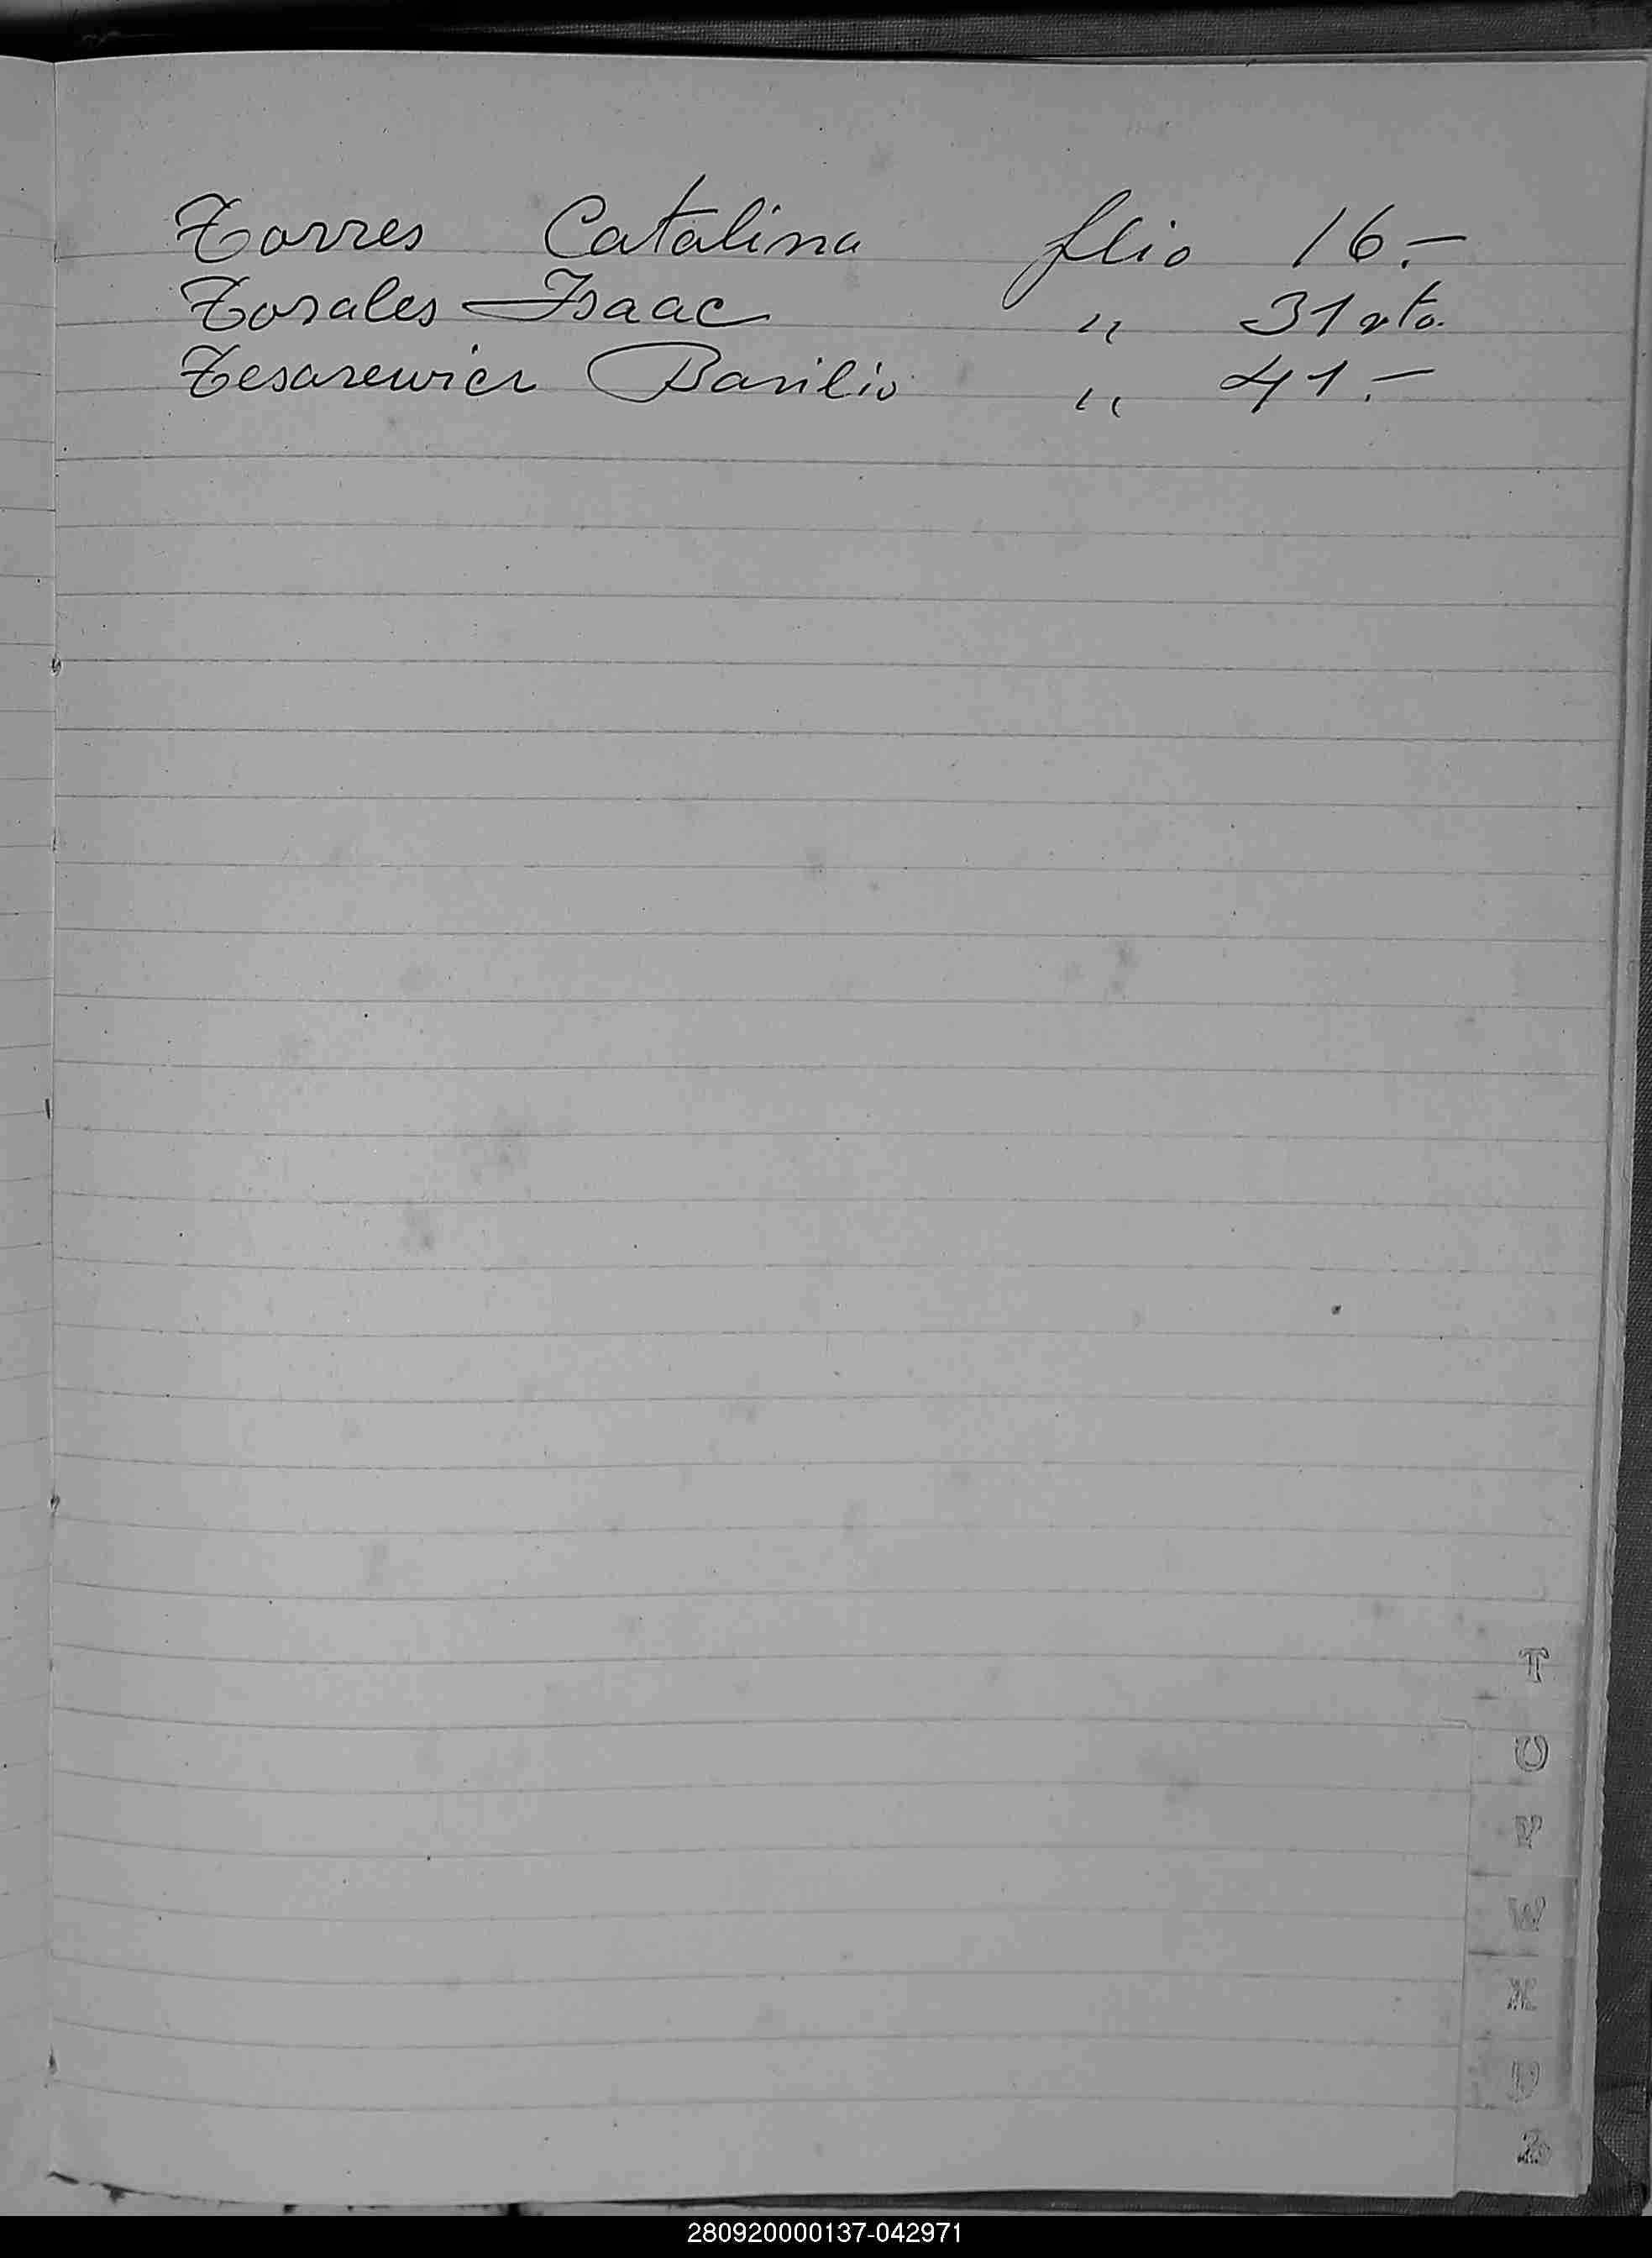 Torres Catalina flio 16.-
Torales Isaac " 31 vto.
Tesarewicz Basilio " 41.-
T
U
V
W
X
Z
280920000137-042971